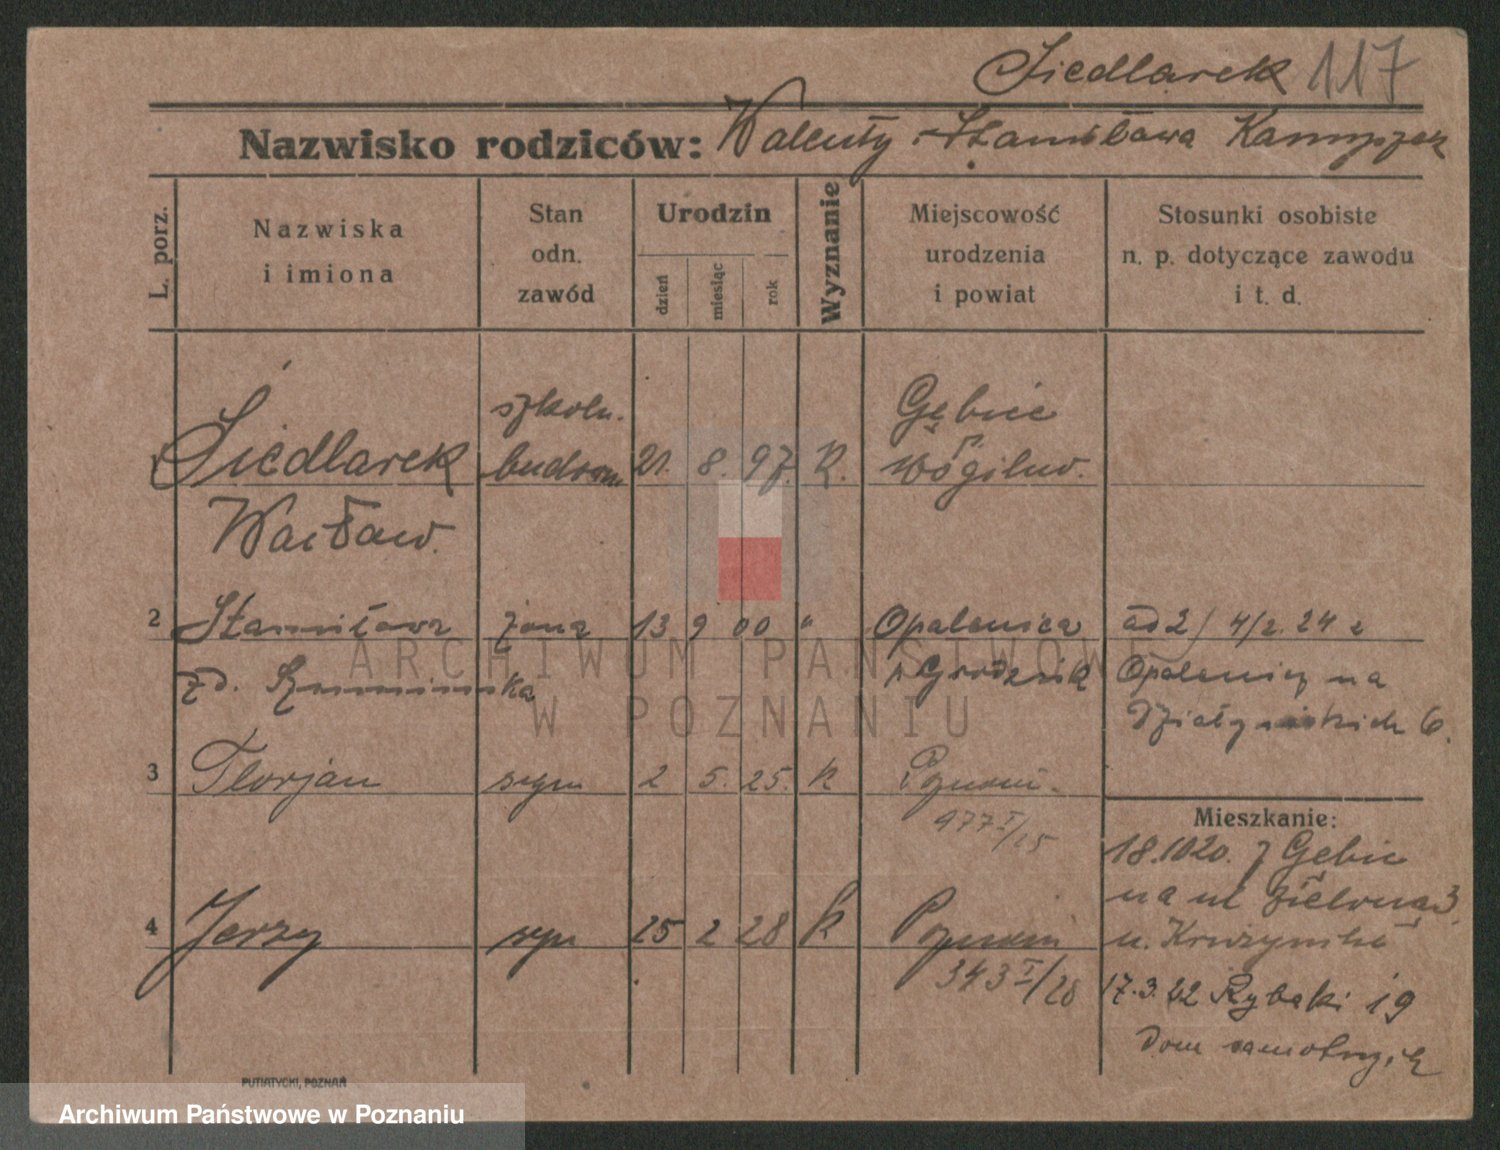 Siedlarek 117
Nazwisko rodziców: Walenty i Stanisława
L. porz.
Nazwiska
i imiona
Stan
odn.
zawód
Urodzin
dzień
miesiąc
rok
Wyznanie
Miejscowość
urodzenia
i powiat
Stosunki osobiste
n. p. dotyczące zawodu
i t. d.
szkoln. Gębice
Siedlarek 21. 8. 97. K.
Wacław.
2 Stanisława żona 13 9 00 " Opalenica ad 2) 4/2. 24 z
zd. Grodzisk Opalenicy na
6.
3 Florjan syn 2 5. 25. k Poznań.
977 I/25
Mieszkanie:
18.10 20. z Gębic
na ul Zielona 3
4 Jerzy syn 25 2 28 k Poznań u.
343 I/28
17.3.22 Rybaki 19
Dom samotnych
PUTIATYCKI, POZNAŃ
ARCHIWUM PAŃSTWOWE
W POZNANIU
Archiwum Państwowe w Poznaniu